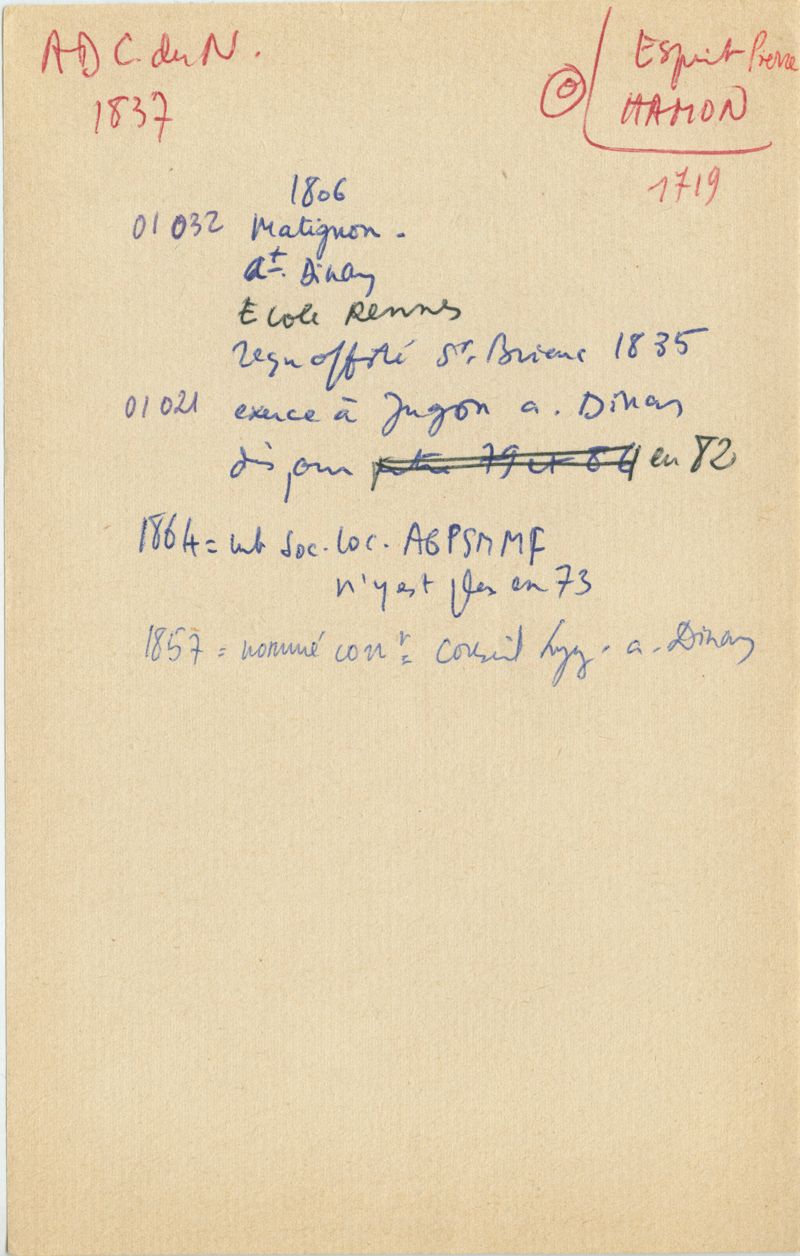 AD C. du N.
1837
Esprit Pierre
HAMON
1719
1806
01 032 Matignon.
at. Dinan
Ecole Rennes
reçu off té St. Brieuc 1835
01 021 exerce à Jugon a. Dinan
en 82
1864 = mb Soc. loc. AGPSMMF
n'y est plus en 73
1857 = nommé corr Conseil hyg. a. Dinan